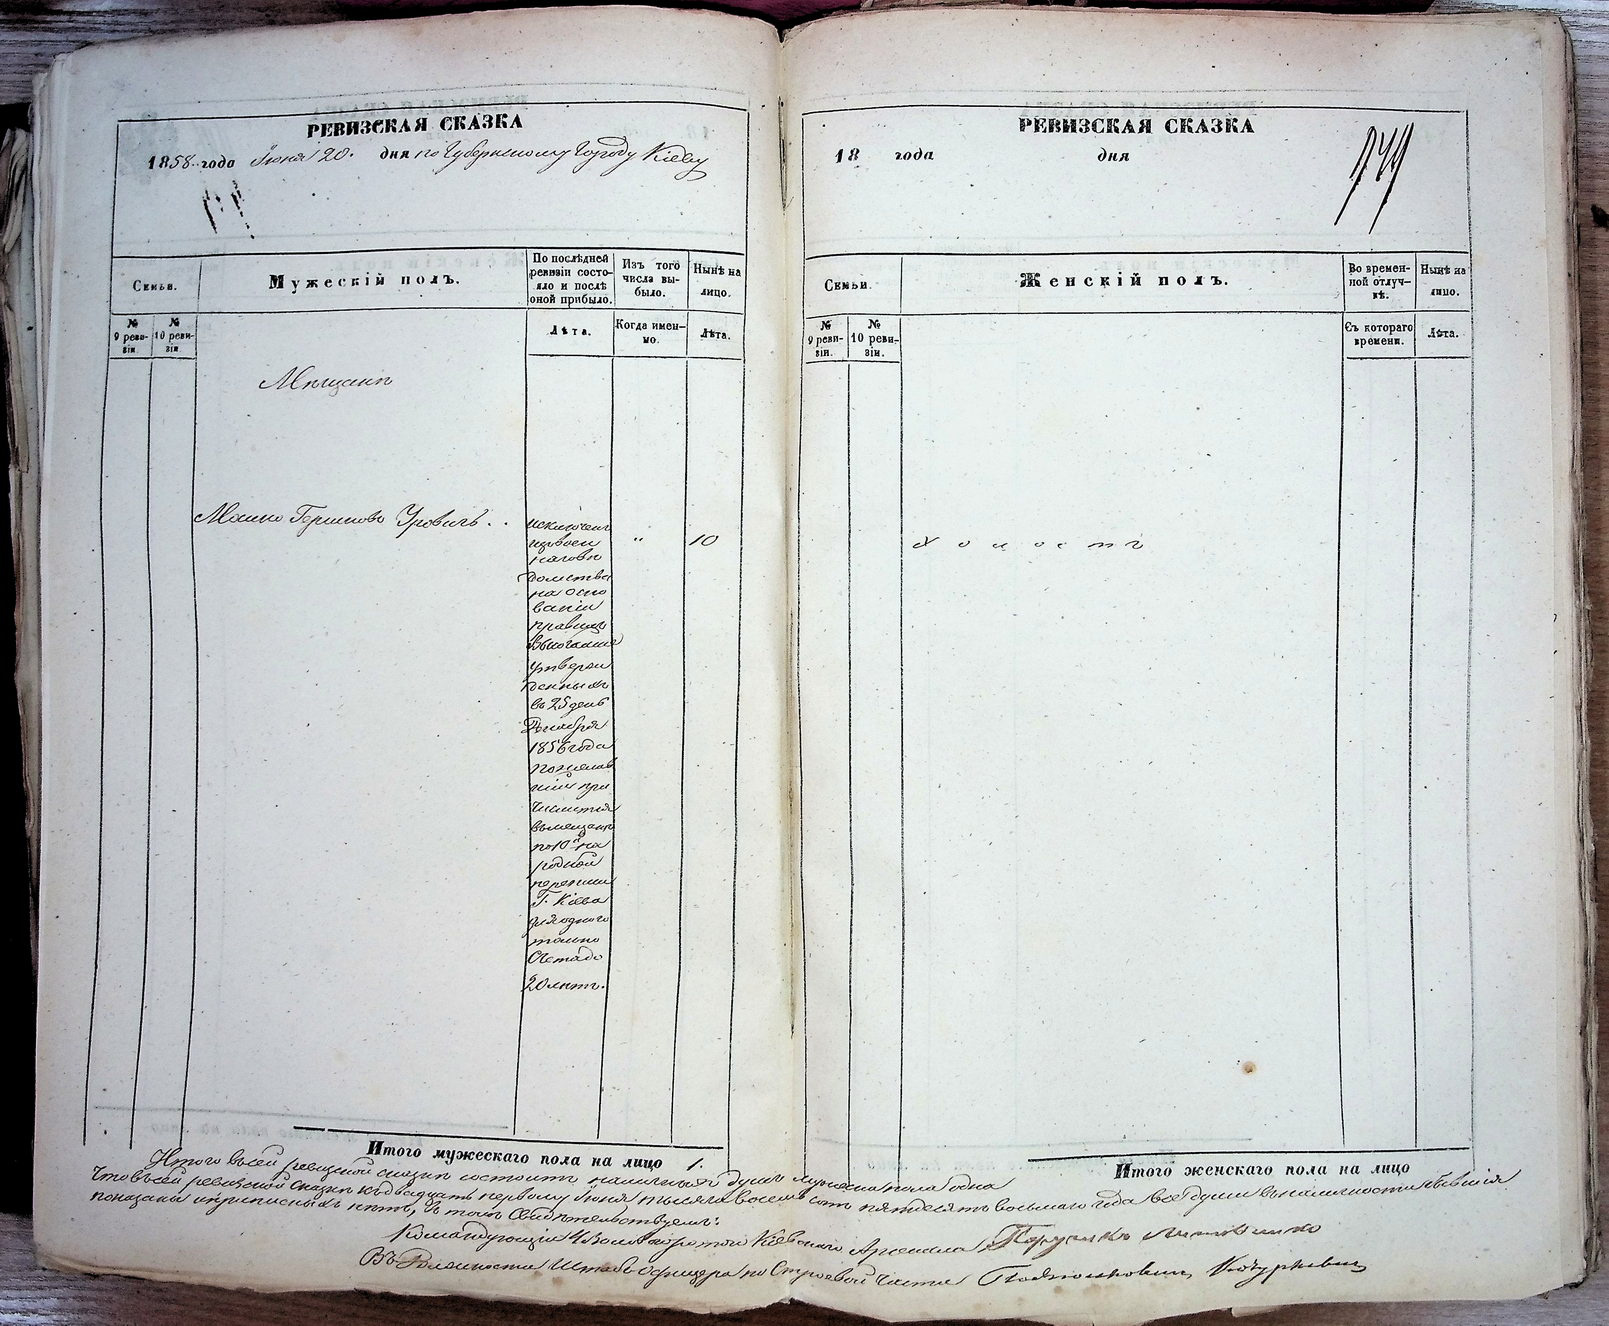 РЕВИЗСКАЯ СКАЗКА
1858 года Іюня 20. дня по Губернскому Городу Кіеву
Семьи.
Мужескій полъ.
По послѣдней ревизіи состояло и послѣ оной прибыло.
Изъ того числа выбыло.
Нынѣ на лицо.
№ 9 ревизіи.
№ 10 ревизіи.
Лѣта.
Когда именно.
Лѣта.
Мѣщане
Гершковъ
исключен
изъ воен
наго вѣ
домства
на осно
ваніи
правилъ
Высочайше
утверж
денныхъ
въ 25 день
Декабря
1856 года
пожелав
шій при
числится
въ мещане
по 10й на
родной
переписи
Г. Кіева
для одного
только
Счета до
20 лѣтъ.
" 10
Итого мужескаго пола на лицо 1.
РЕВИЗСКАЯ СКАЗКА
18 года дня
Семьи.
Женскій полъ.
Во временной отлучкѣ.
Нынѣ на лицо.
№ 9 ревизіи.
№ 10 ревизіи.
Съ котораго времени.
Лѣта.
Холостъ
Итого женскаго пола на лицо
Итого въ сей ревизской сказкѣ состоитъ наличныхъ душъ мужеска пола одна
Что въ сей ревизской сказкѣ къ двадцать первому Іюня тысяча восемь сотъ пятьдесятъ восьмаго года все души въ наличности бывшія
показаны и прописныхъ нѣтъ, въ томъ Свидѣтельствуемъ:
Командующій Кіевскаго Арсенала Поручикъ
Въ Должности Штабъ Офицера по Строевой Части Подполковникъ